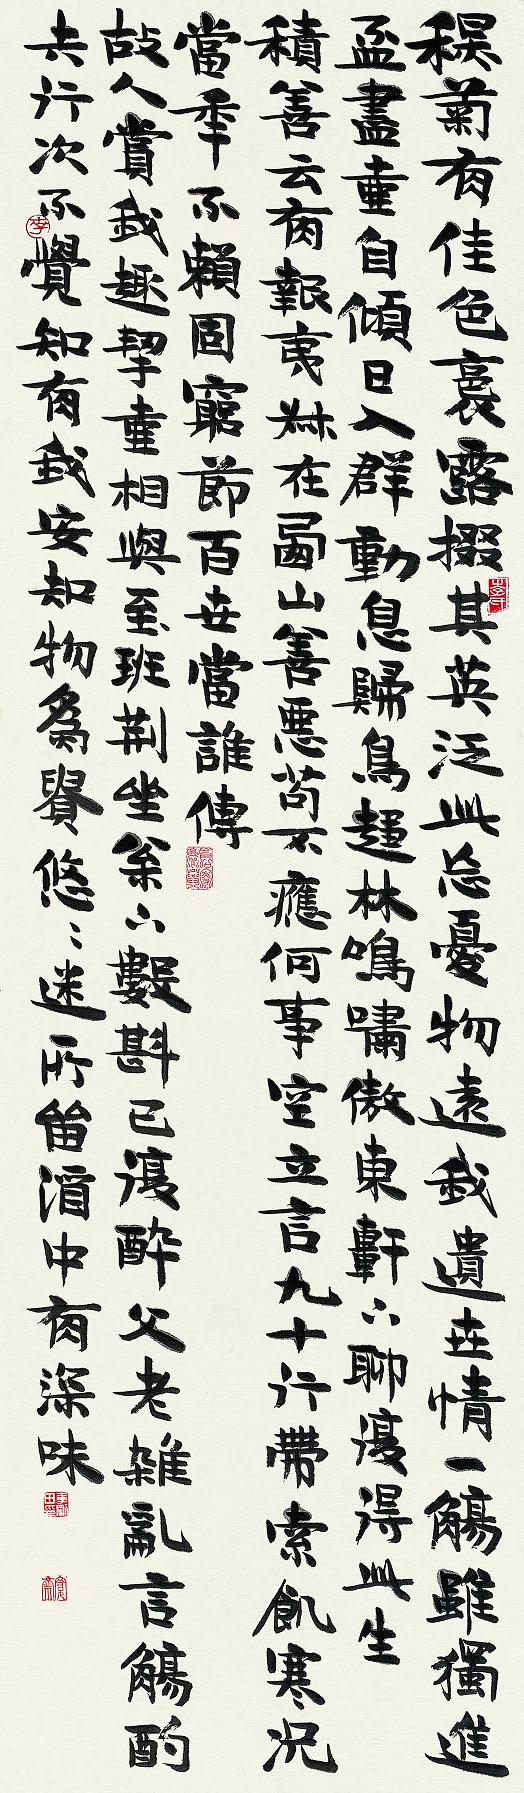 秋菊有佳色裛露掇其英泛此忘憂物遠我遺世情一觴雖獨進
盃盡壺自傾日入群動息歸鳥趨林鳴嘯傲東軒下聊復得此生
積善云有報夷叔在西山善惡苟不應何事空立言九十行帶索飢寒況
當年不賴固窮節百世當誰傳
故人賞我趣挈壺相與至班荊坐松下數斟已復醉父老雜亂言觴酌
失行次不覺知有我安知物為貴悠〻迷所留酒中有深味